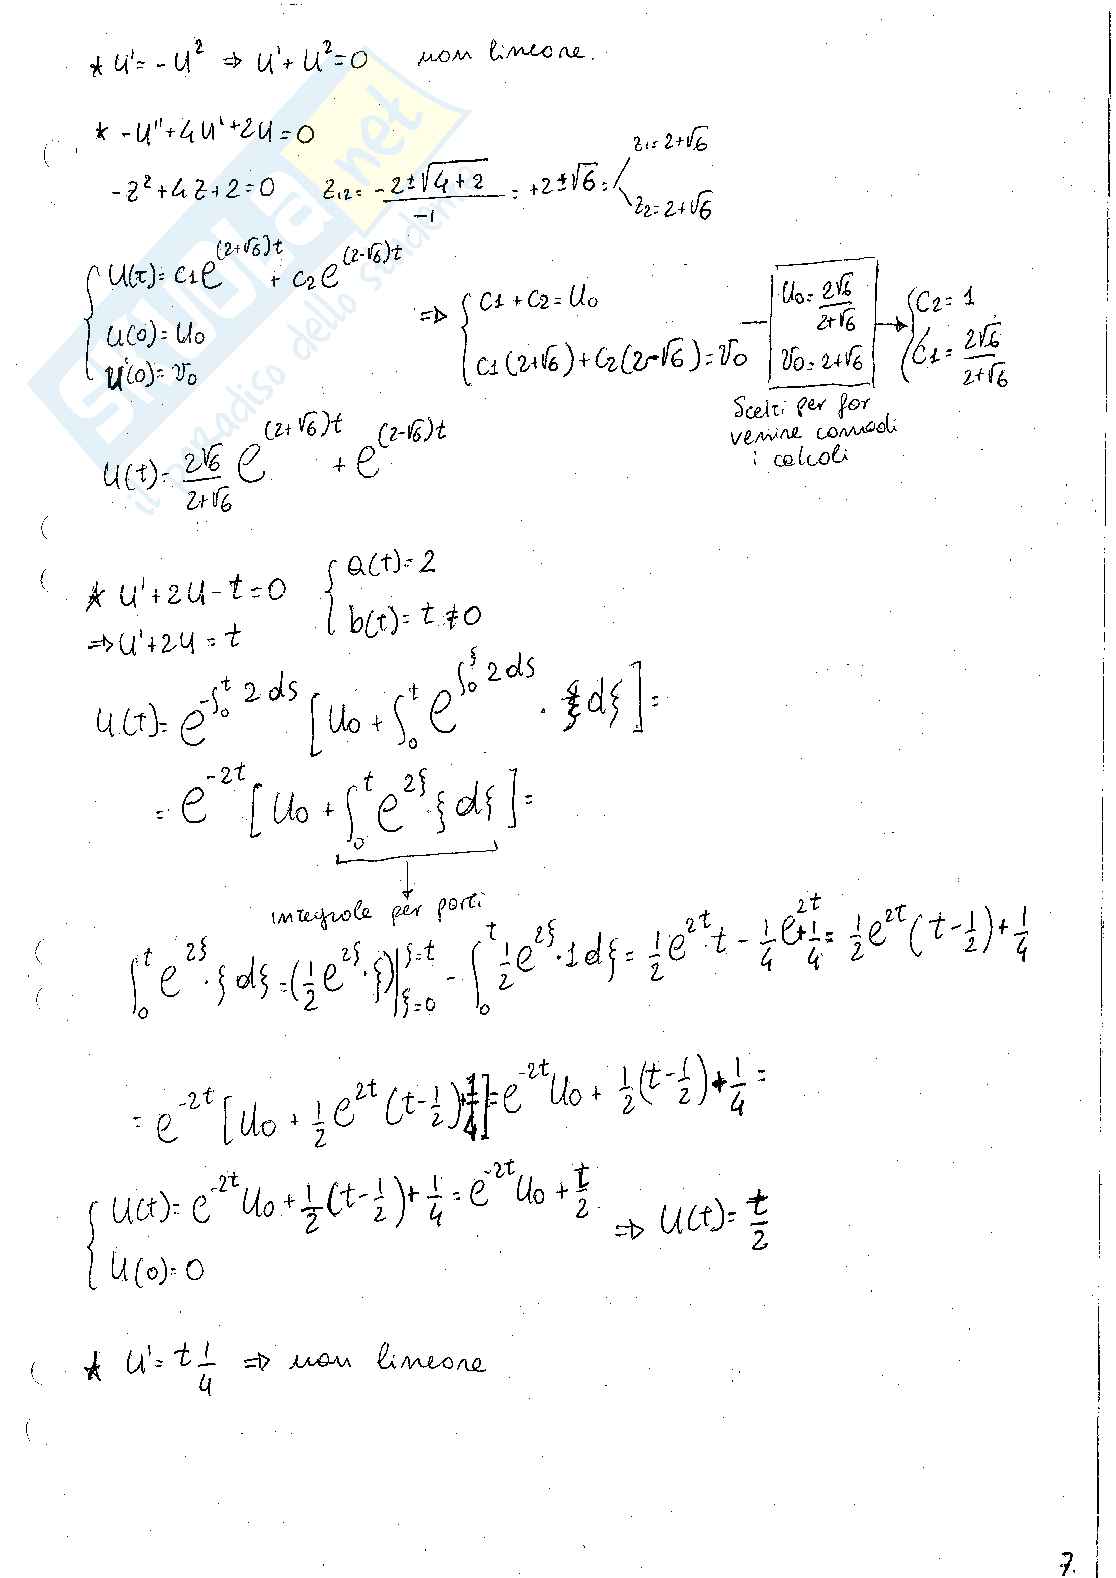 * u' = -u² ⇒ u' + u² = 0 non lineare.
* -u'' + 4u' + 2u = 0
-z² + 4z + 2 = 0 z₁,₂ = -2±√(4+2) / -1 = +2±√6 = z₁ = 2+√6
z₂ = 2+√6
{ u(t) = c1 e^((2+√6)t) + c2 e^((2-√6)t)
u(0) = u₀
u'(0) = v₀
⇒ { c1 + c2 = u₀
c1(2+√6) + c2(2-√6) = v₀
u₀ = 2√6 / 2+√6
v₀ = 2+√6
→ { c2 = 1
c1 = 2√6 / 2+√6
Scelti per far
venire comodi
i calcoli
u(t) = 2√6 / 2+√6 e^((2+√6)t) + e^((2-√6)t)
* u' + 2u - t = 0 { a(t) = 2
⇒ u' + 2u = t b(t) = t ≠ 0
u(t) = e^(-∫₀ᵗ 2 ds) [ u₀ + ∫₀ᵗ e^(∫₀^ξ 2 ds) · ξ dξ ] =
= e^(-2t) [ u₀ + ∫₀ᵗ e^(2ξ) ξ dξ ] =
integrale per parti
∫₀ᵗ e^(2ξ) · ξ dξ = (1/2 e^(2ξ) · ξ)|ξ=t ξ=0 - ∫₀ᵗ 1/2 e^(2ξ) · 1 dξ = 1/2 e^(2t) t - 1/4 e^(2t) + 1/4 = 1/2 e^(2t) (t - 1/2) + 1/4
= e^(-2t) [ u₀ + 1/2 e^(2t) (t - 1/2) + 1/4 ] = e^(-2t) u₀ + 1/2 (t - 1/2) + 1/4 =
{ u(t) = e^(-2t) u₀ + 1/2 (t - 1/2) + 1/4 = e^(-2t) u₀ + t/2
u(0) = 0
⇒ u(t) = t/2
* u' = t 1/4 ⇒ non lineare
7.
SKUOLA.net
il paradiso dello studente